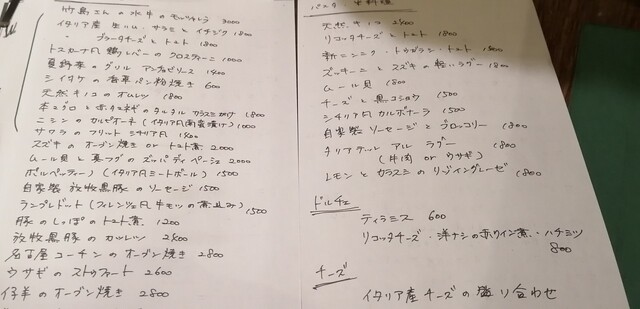 竹島さんの 水牛のモッツァレラ 3000
イタリア産 生ハム・サラミ と イチジク 1800
〃 ブラータチーズとトマト 1800
トスカーナ風 鶏レバーのクロスティーニ 1000
夏野菜の グリル アンチョビソース 1400
シイタケの 香草パン粉焼き 600
天然キノコの オムレツ 1800
本マグロと 赤タマネギの タルタル カラスミがけ 1800
ニシンの カルピオーネ (イタリア風南蛮漬け) 1000
サワラの フリット シチリア風 1400
スズキの オーブン焼き or トマト煮 2000
ムール貝と 真フグの ズッパディペーシェ 2000
ポルペッティー (イタリア風ミートボール) 1500
自家製 放牧黒豚の ソーセージ 1500
ランプレドット (フィレンツェ風 牛モツの煮込み) 1500
豚のしっぽの トマト煮 1200
放牧黒豚の カツレツ 2400
名古屋コーチンの オーブン焼き 2800
ウサギの ストゥファート 2600
仔羊の オーブン焼き 2800
パスタ 料理
天然キノコ 2400
リコッタチーズと トマト 1800
新ニンニク・トウガラシ・トマト 1500
ズッキーニと スズキの 軽いラグー 1800
ムール貝 1800
チーズと 黒コショウ 1500
シチリア風 カルボナーラ 1500
自家製 ソーセージと ブロッコリー 1800
タリアテッレ アル ラグー 1800
(牛肉 or ウサギ)
レモンと カラスミの リングイネ 1800
ドルチェ
ティラミス 600
リコッタチーズ・洋ナシの赤ワイン煮・ハチミツ
800
チーズ
イタリア産 チーズの 盛り合わせ